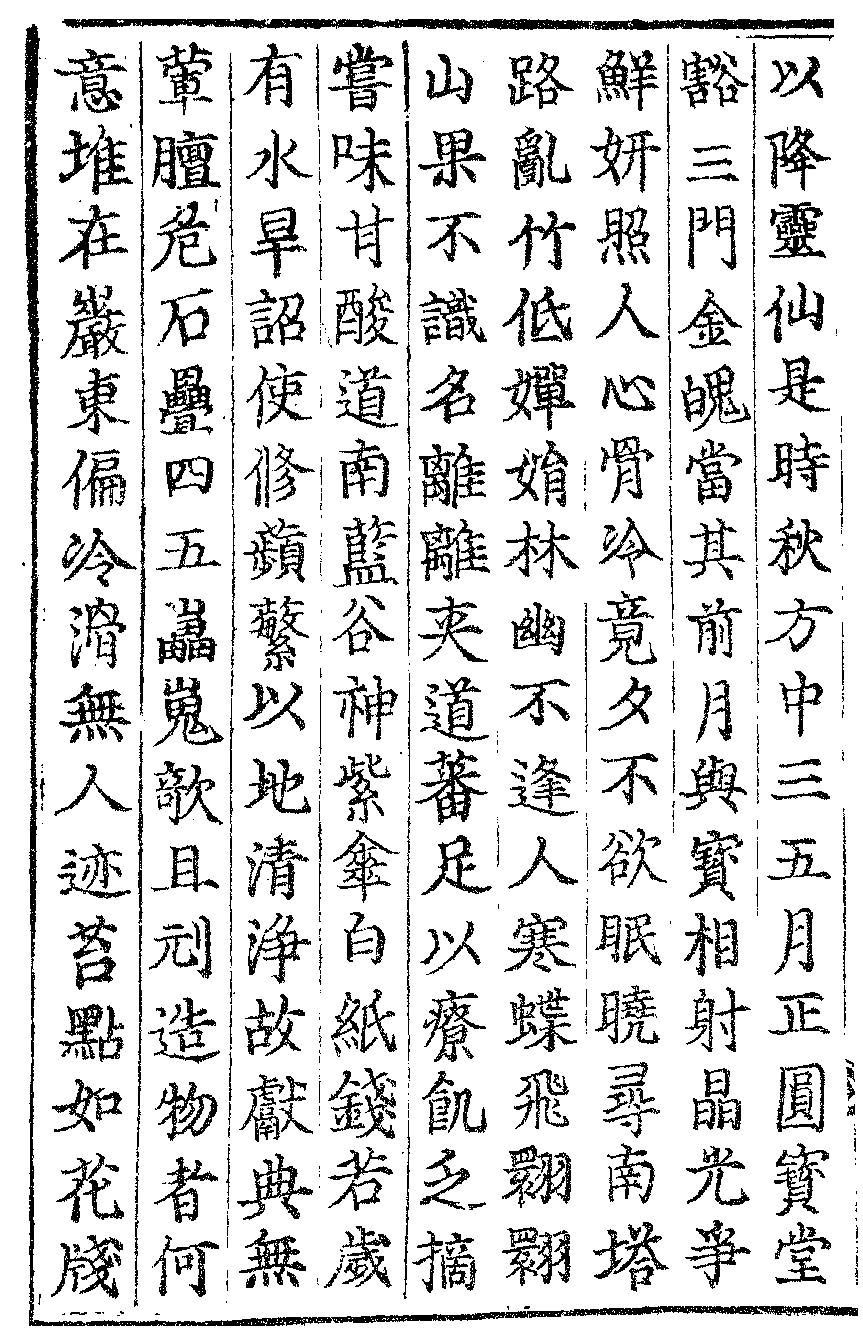 以降靈仙是時秋方中三五月正圓寳堂
豁三門金魄當其前月與寳相射晶光爭
鮮妍照人心骨冷竟夕不欲眠曉尋南塔
路亂竹低嬋娟林幽不逢人寒蝶飛翾翾
山果不識名離離夾道蕃足以療飢乏摘
嘗味甘酸道南藍谷神紫傘白紙錢若歲
有水旱詔使修蘋蘩以地清淨故獻典無
葷膻危石疊四五䨓嵬欹且刓造物者何
意堆在巖東偏冷滑無人迹苔點如花牋